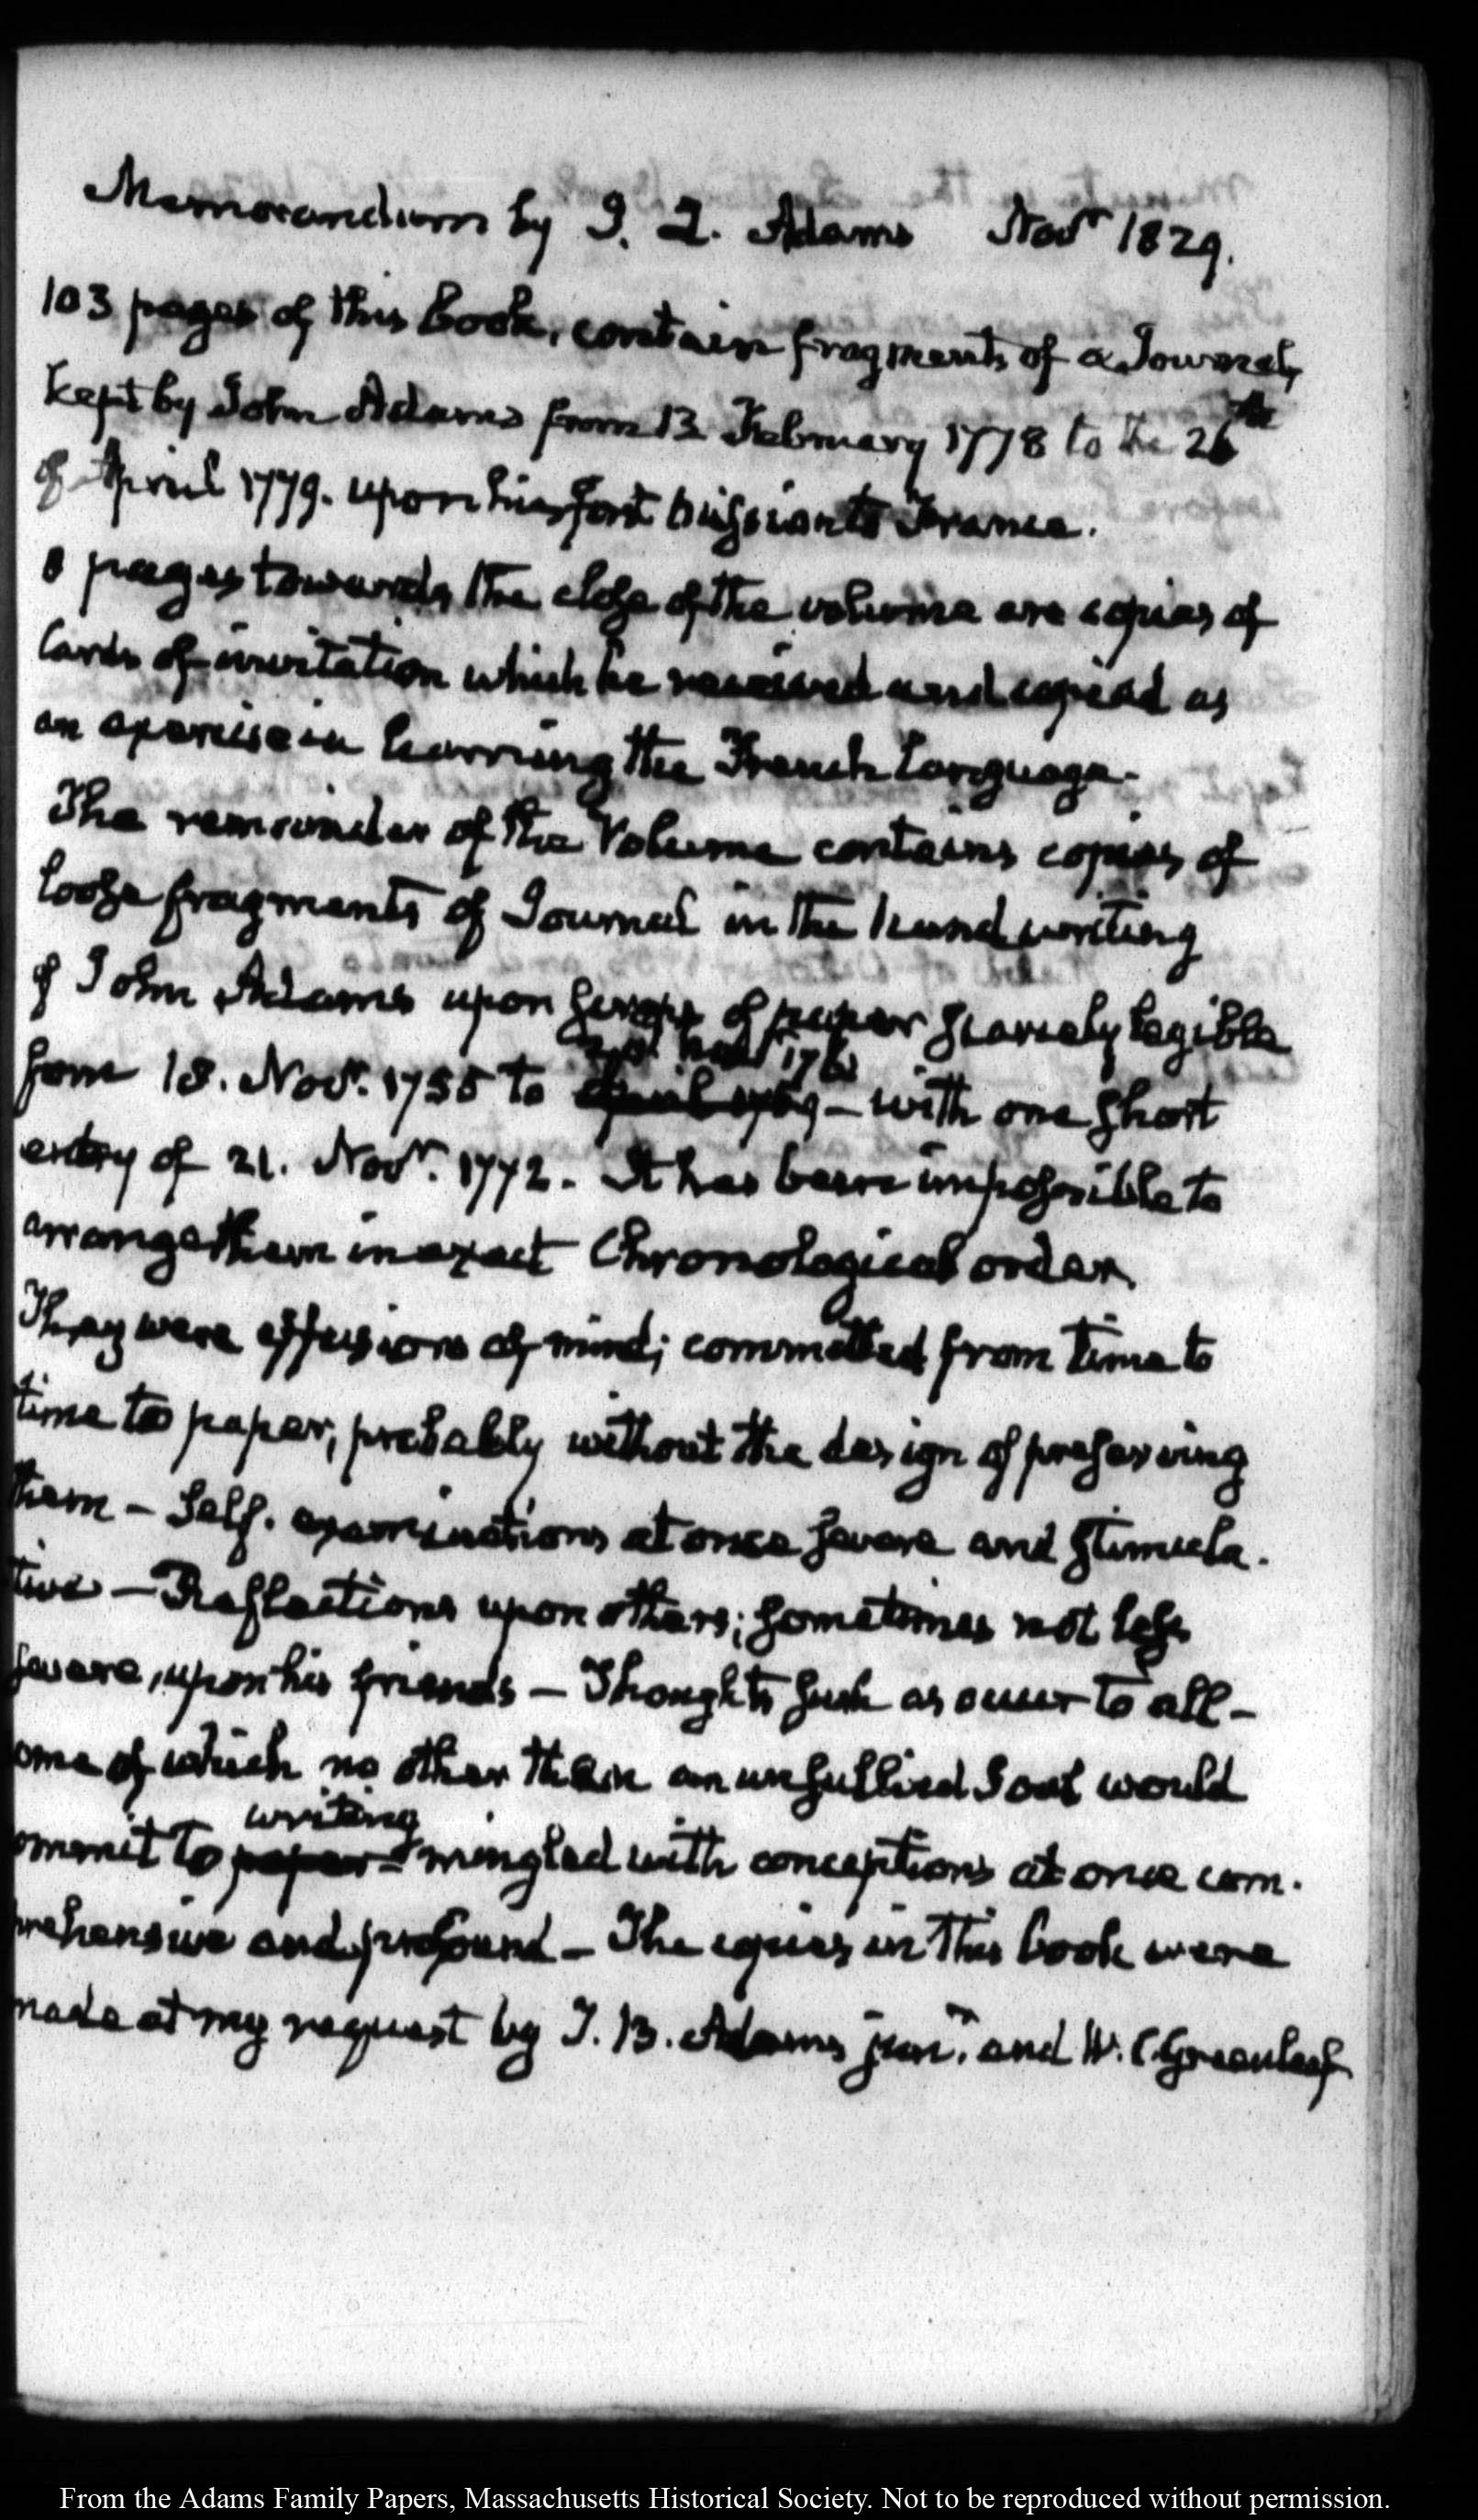 Memorandum by J. Q. Adams Novr 1829.
103 pages of this book, contain fragments of a Journal,
kept by John Adams from 13 February 1778 to the 26th
of April 1779. upon his first mission to France.
8 pages towards the close of the volume are copies of
Cards of invitation which he received and copied as
an exercise in learning the French Language.
The remainder of the Volume contains copies of
loose fragments of Journal in the hand writing
of John Adams upon scraps of paper scarcely legible
from 18. Novr. 1755 to April 1769 — with one short
entry of 21. Novr. 1772. It has been impossible to
arrange them in exact Chronological order.
They were effusions of mind; committed from time to
time to paper, probably without the design of preserving
them — Self. examinations at once severe and stimula.
tive — Reflections upon others; sometimes not less
severe, upon his friends — Thoughts such as occur to all —
ome of which no other than an unsullied Soul would
writing
ommit to paper — mingled with conceptions at once com.
prehensive and profound — The copies in this book were
made at my request by T. B. Adams junr. and W. C. Greenleaf
From the Adams Family Papers, Massachusetts Historical Society. Not to be reproduced without permission.